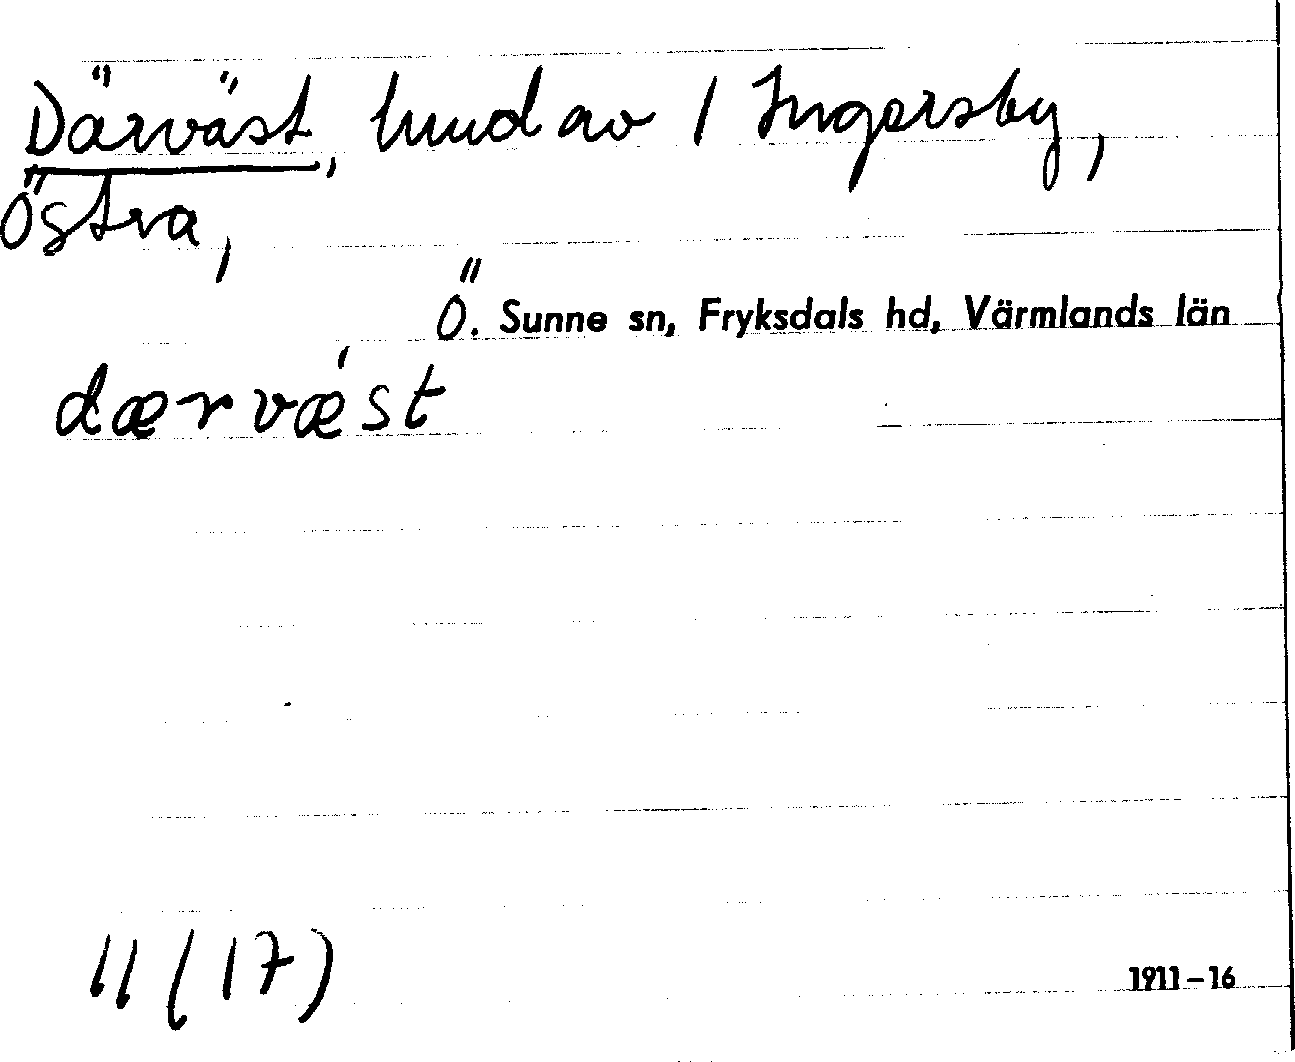 Därväst, hmd av 1 Ingersby,
Östra,
Ö. Sunne sn, Fryksdals hd, Värmlands län
dærvǽst
11 (17)
1911–16